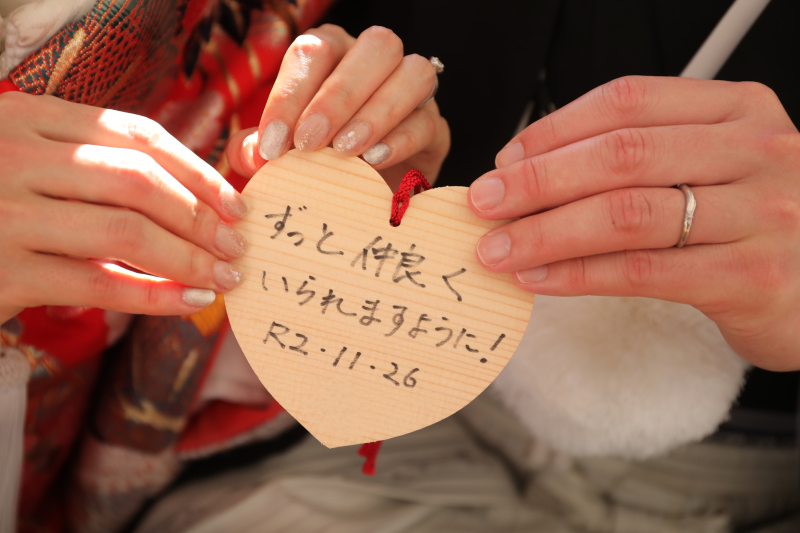 ずっと仲良く
いられますように!
R2・11・26